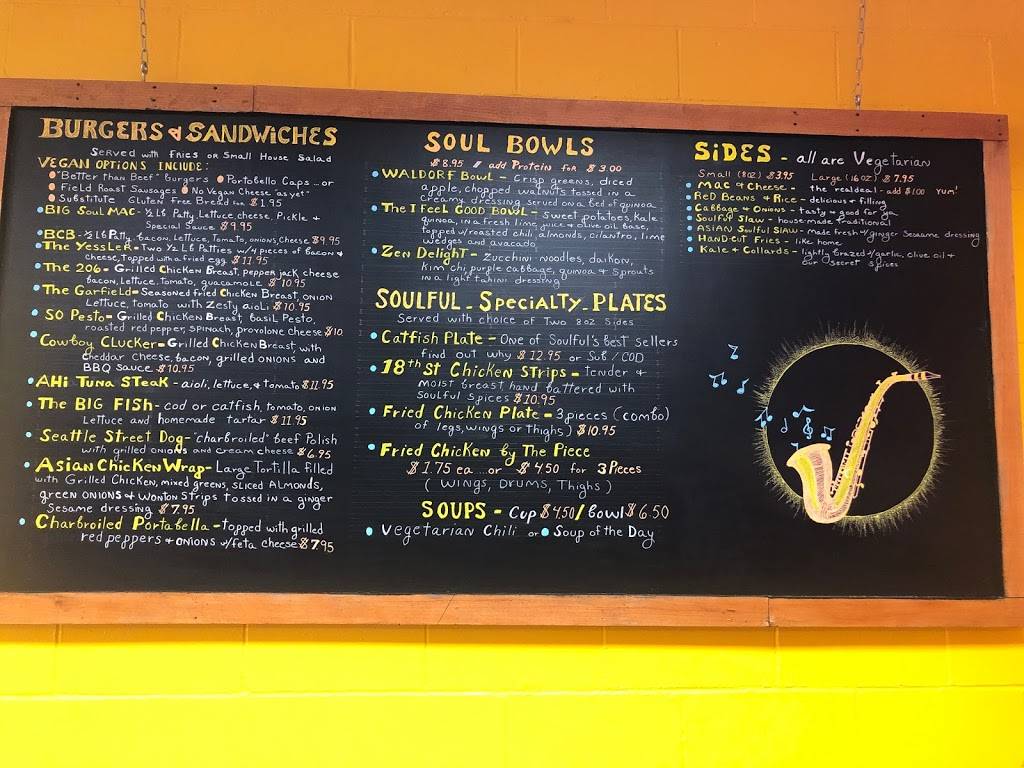 BURGERS & SANDWICHES
Served with Fries or Small House Salad
VEGAN OPTIONS INCLUDE:
"Better than Beef" Burgers • Portobello Caps ... or
Field Roast Sausages • No Vegan Cheese "as yet"
Substitute Gluten Free Bread for $1.95
BIG Soul MAC - ½ Lb Patty, Lettuce, cheese, Pickle +
Special Sauce $9.95
BCB - ½ Lb Patty, bacon, Lettuce, Tomato, onions, Cheese $9.95
The Yessler - Two ½ Lb Patties w/n pieces of bacon +
cheese, topped with a fried egg $11.95
The 206 - Grilled Chicken Breast, pepper jack cheese
bacon, Lettuce, tomato, guacamole $10.95
The Garfield - Seasoned fried Chicken Breast, onion
Lettuce, tomato with Zesty aioli $10.95
SO Pesto - Grilled Chicken Breast, basil Pesto,
roasted red pepper, spinach, provolone cheese $10
Cowboy Clucker - Grilled Chicken Breast, with
cheddar cheese, bacon, grilled onions and
BBQ Sauce $10.95
AHi Tuna Steak - aioli, lettuce, + tomato $11.95
The BIG FISh - cod or catfish, tomato, onion
Lettuce and homemade tartar $11.95
Seattle Street Dog - "charbroiled" beef Polish
with grilled onions and cream cheese $6.95
Asian Chicken Wrap - Large Tortilla filled
with Grilled Chicken, mixed greens, sliced Almonds,
green onions + Wonton Strips tossed in a ginger
Sesame dressing $7.95
Charbroiled Portabella - topped with grilled
red peppers + onions w/feta cheese $7.95
SOUL BOWLS
$8.95 // add Protein for $3.00
WALDORF Bowl - Crisp greens, diced
apple, chopped walnuts tossed in a
creamy dressing served on a bed of quinoa
The I Feel GOOD BOWL - sweet potatoes, Kale,
quinoa, in a fresh lime juice & olive oil base,
topped w/roasted chili almonds, cilantro, lime
wedges and avacado
Zen Delight - zucchini noodles, daikon,
Kim chi, purple cabbage, quinoa & Sprouts
in a light tahini dressing
SOULFUL - Specialty - PLATES
Served with choice of Two 8oz Sides
Catfish Plate - One of Soulful's Best sellers
find out why $12.95 or Sub / COD
18th St Chicken Strips - tender +
moist breast hand battered with
Soulful Spices $10.95
Fried Chicken Plate - 3 pieces (combo)
of legs, wings or Thighs) $10.95
Fried Chicken by The Piece
$1.75 ea ... or $4.50 for 3 Pieces
(Wings, Drums, Thighs)
SOUPS - Cup $4.50 / bowl $6.50
Vegetarian Chili or • Soup of the Day
SiDES - all are Vegetarian
Small (8oz) $3.95 Large (16oz) $7.95
Mac & Cheese - the real deal - add $1.00 yum!
Red Beans & Rice - delicious & filling
Cabbage & Onions - tasty & good for ya
Soulful Slaw - house-made traditional
ASIAN Soulful Slaw - made fresh w/ginger Sesame dressing
Hand-cut Fries - like home
Kale & Collards - lightly brazed w/garlic, olive oil +
our secret spices